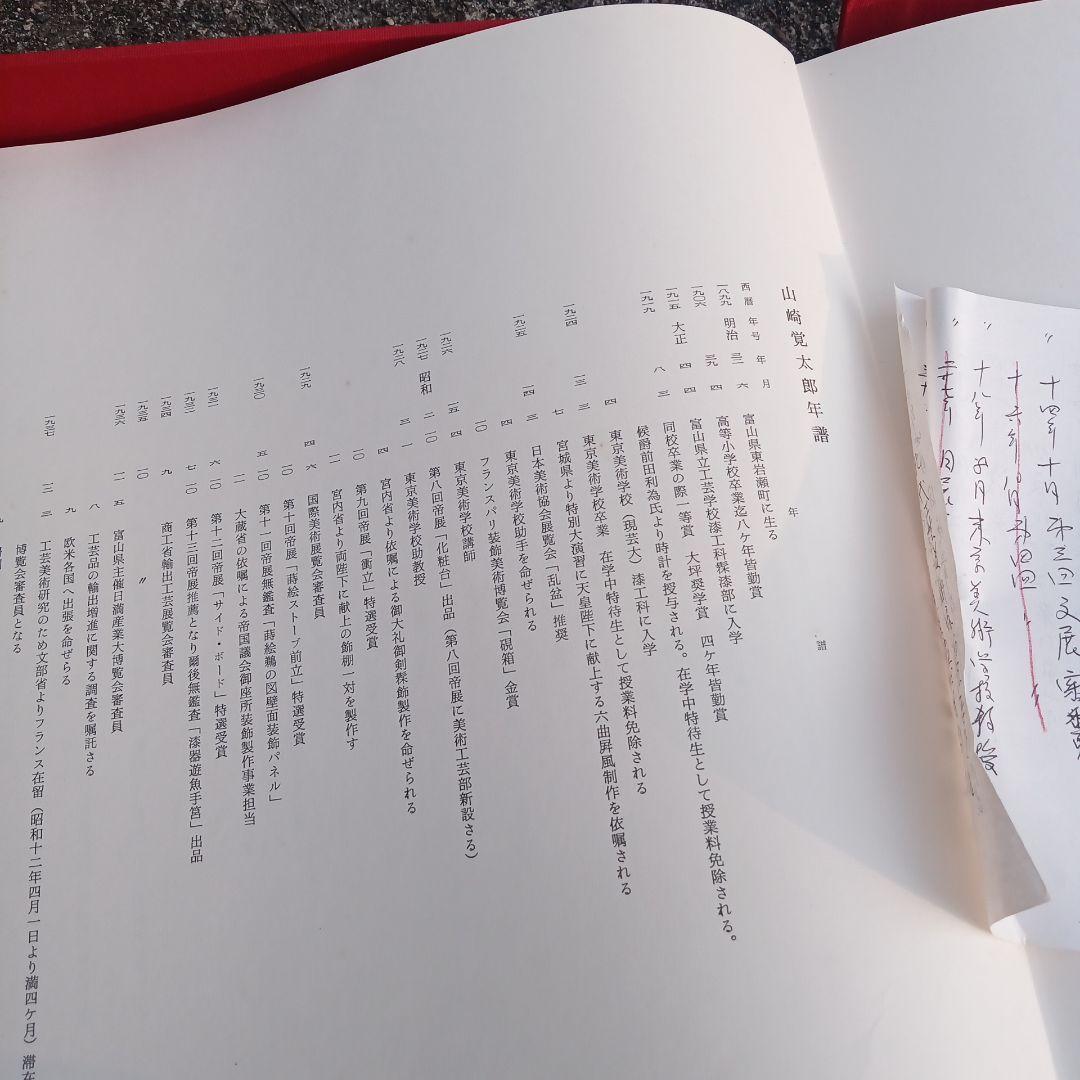 山崎覚太郎年譜
年譜
西暦 年号 年 月
一八九九 明治 三二 六 富山県東岩瀬町に生る
一九〇六 三九 四 高等小学校卒業迄八ケ年皆勤賞
一九一五 大正 四 四 富山県立工芸学校漆工科髹漆部に入学
同校卒業の際一等賞 大坪奨学賞 四ケ年皆勤賞
一九一九 八 三 侯爵前田利為氏より時計を授与される。在学中特待生として授業料免除される。
四 東京美術学校(現芸大)漆工科に入学
一九二四 一三 三 東京美術学校卒業 在学中特待生として授業料免除される
七 宮城県より特別大演習に天皇陛下に献上する六曲屏風制作を依嘱される
一九二五 一四 三 日本美術協会展覧会「乱盆」推奨
四 東京美術学校助手を命ぜられる
一〇 フランスパリ装飾美術博覧会「硯箱」金賞
一九二六 一五 四 東京美術学校講師
一九二七 昭和 二 一〇 第八回帝展「化粧台」出品(第八回帝展に美術工芸部新設さる)
一九二八 三 一 東京美術学校助教授
四 宮内省より依嘱による御大礼御剣髹飾製作を命ぜられる
一〇 第九回帝展「衝立」特選受賞
一一 宮内省より両陛下に献上の飾棚一対を製作す
一九二九 四 六 国際美術展覧会審査員
一〇 第十回帝展「蒔絵ストーブ前立」特選受賞
一九三〇 五 一〇 第十一回帝展無鑑査「蒔絵鵜の図壁面装飾パネル」
一一 大蔵省の依嘱による帝国議会御座所装飾製作事業担当
一九三一 六 一〇 第十二回帝展「サイド・ボード」特選受賞
一九三二 七 一〇 第十三回帝展推薦となり爾後無鑑査「漆器遊魚手筥」出品
一九三四 九 商工省輸出工芸展覧会審査員
一九三五 一〇 〃
一九三六 一一 五 富山県主催日満産業大博覧会審査員
八 工芸品の輸出増進に関する調査を嘱託さる
九 欧米各国へ出張を命ぜらる
一九三七 一二 三 工芸美術研究のため文部省よりフランス在留(昭和十二年四月一日より満四ケ月)滞在
博覧会審査員となる
九
〃 十四年十月 第三回文展審査員
〃
〃 十八年 月 東京美術学校教授